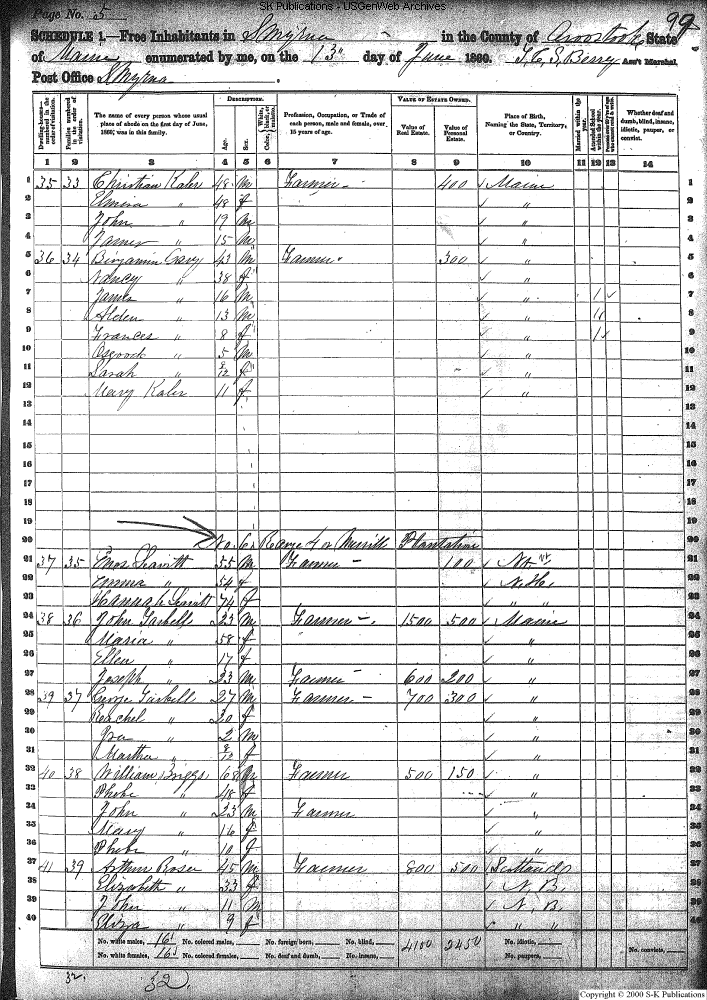 SK Publications - USGenWeb Archives
Page No. 5
99
SCHEDULE 1.—Free Inhabitants in Smyrna in the County of Aroostook State
of Maine enumerated by me, on the 13" day of June 1860. T. C. S. Berry Ass't Marshal.
Post Office Smyrna
Dwelling-houses— numbered in the order of visitation.
Families numbered in the order of visitation.
The name of every person whose usual place of abode on the first day of June, 1860, was in this family.
DESCRIPTION.
Age.
Sex.
Color, White, black, or mulatto.
Profession, Occupation, or Trade of each person, male and female, over 15 years of age.
VALUE OF ESTATE OWNED.
Value of Real Estate.
Value of Personal Estate.
Place of Birth, Naming the State, Territory, or Country.
Married within the year.
Attended School within the year.
Whether deaf and dumb, blind, insane, idiotic, pauper, or convict.
1 2 3 4 5 6 7 8 9 10 11 12 13 14
1 35 33 Christian Kaler 48 M Farmer 400 Maine 1
2 Elmira " 48 f " 2
3 John " 19 M " 3
4 James " 15 M " 4
5 36 34 Benjamin Gary 43 M Farmer 300 " 5
6 Nancy " 38 f " 6
7 James " 16 M " 1 ✓ 7
8 Alden " 13 M " " 8
9 Frances " 8 f " 1 ✓ 9
10 5 M " 10
11 Sarah " 8/12 f " 11
12 Mary Kaler 11 f " 12
13 13
14 14
15 15
16 16
17 17
18 18
19 19
20 No. 6, Range 4 or Merrill Plantation 20
21 37 35 Enos Leavitt 55 M Farmer 100 N.H. 21
22 Emma " 54 f N.H. 22
23 Hannah Leavitt 74 f " " 23
24 38 36 John Tarbell 23 M Farmer 1500 500 Maine 24
25 Maria " 58 f " 25
26 Ellen " 17 f " 26
27 Joseph " 23 M Farmer 600 200 " 27
28 39 37 George Tarbell 27 M Farmer 700 300 " 28
29 Reachel " 20 f " 29
30 Ira " 2 M " 30
31 Martha " 8/12 f " 31
32 40 38 William Briggs 68 M Farmer 500 150 " 32
33 Phebe " 48 f " 33
34 John " 23 M Farmer " 34
35 Mary " 16 f " 35
36 Phebe " 10 f " 36
37 41 39 Arthur Rose 45 M Farmer 800 500 Scotland 37
38 Elizabeth " 33 f N. B. 38
39 John " 11 M N. B. 39
40 Eliza " 9 f " " 40
No. white males, 16 No. colored males, No. foreign born, No. blind, 4100 2450 No. idiotic, No. convicts,
No. white females, 16 No. colored females, No. deaf and dumb, No. insane, No. paupers,
32. 32.
Copyright © 2000 S-K Publications